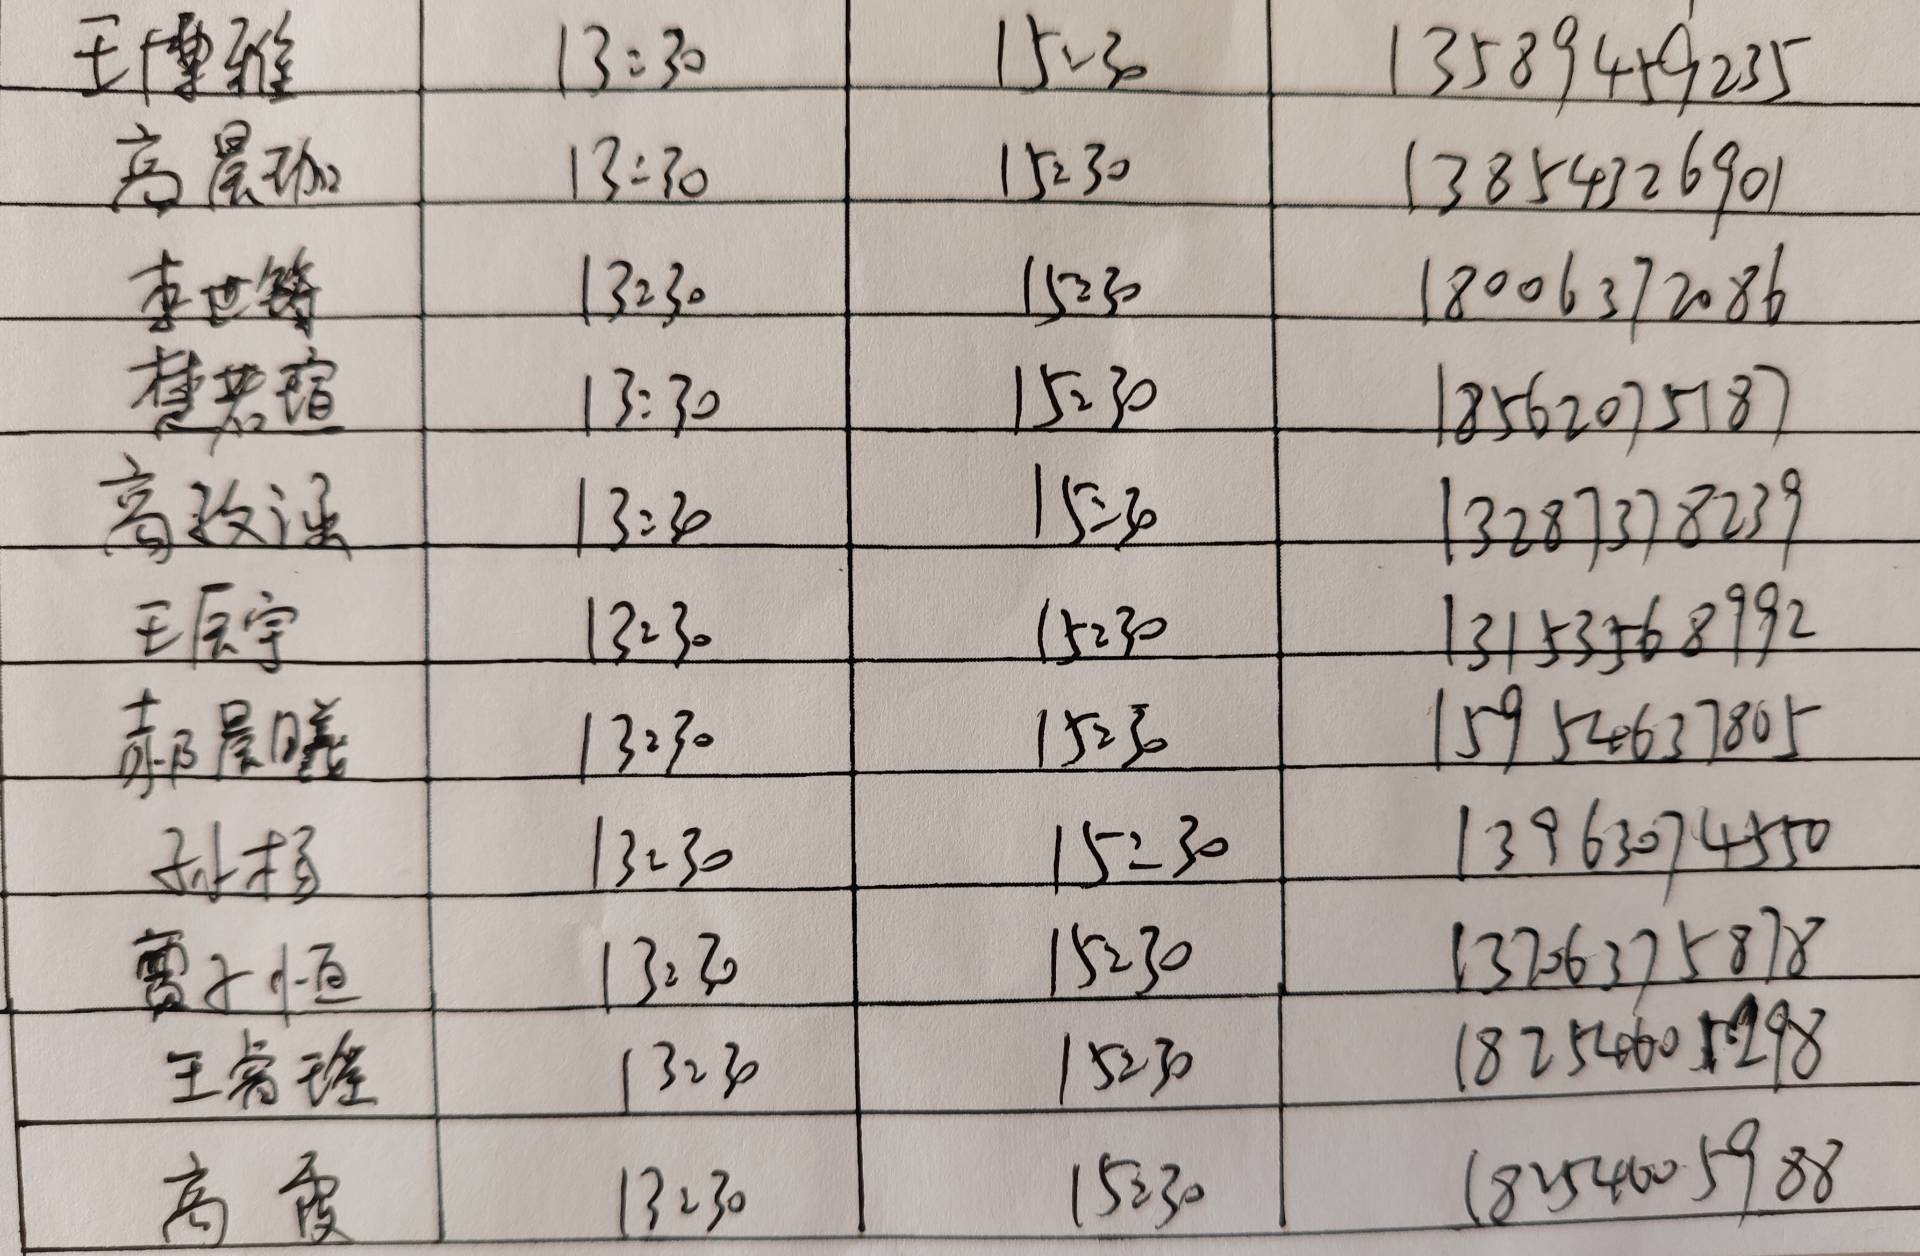 王博雅 13:30 15:30 13589459235
高晨珈 13:30 15:30 13854326901
李世锦 13:30 15:30 18006372086
楚若瑄 13:30 15:30 18562075187
高政涵 13:30 15:30 13287378239
王辰宇 13:30 15:30 13153568992
郝晨曦 13:30 15:30 15954637805
孙杨 13:30 15:30 13963074550
贾子恒 13:30 15:30 13706375878
王睿瑶 13:30 15:30
高霞 13:30 15:30 18254605988